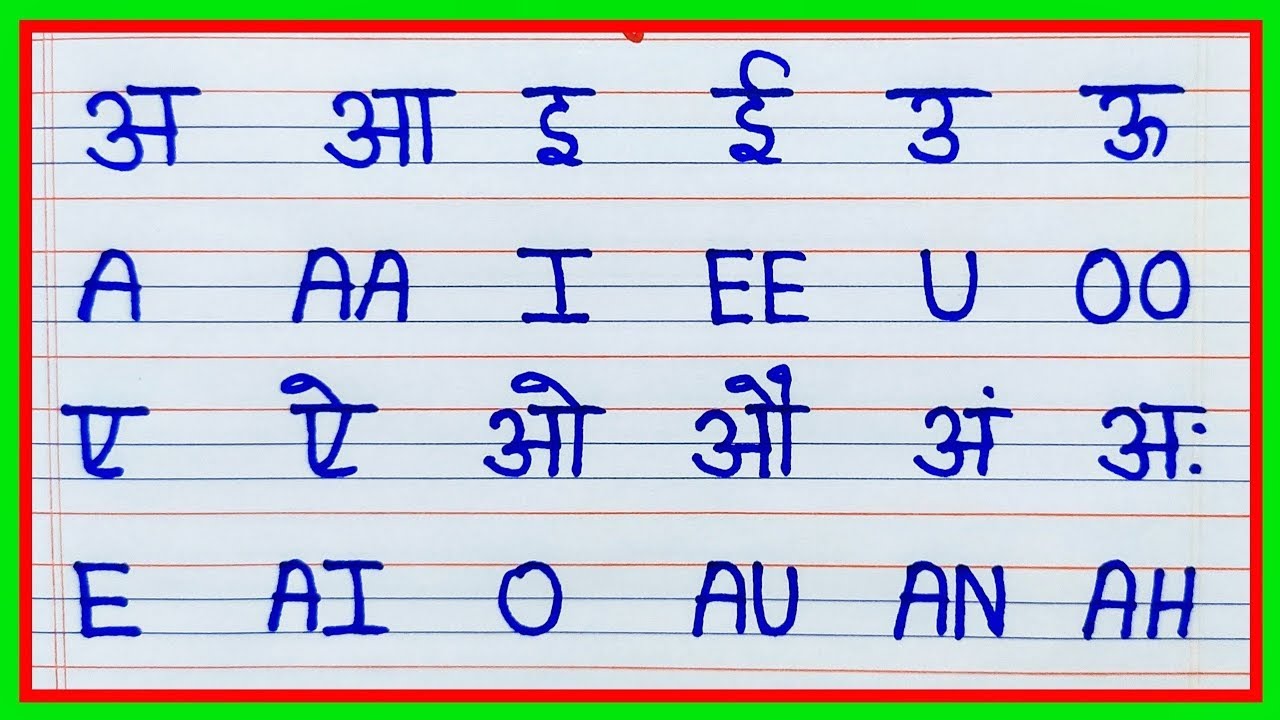 अ आ इ ई उ ऊ
A AA I EE U OO
ए ऐ ओ औ अं अः
E AI O AU AN AH